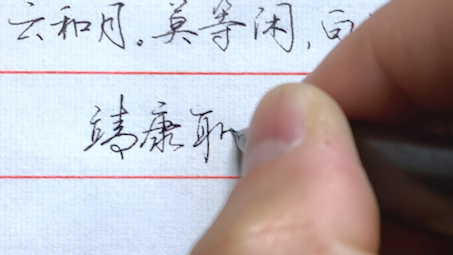 云和月。莫等闲,白
靖康耻